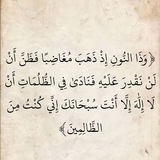 ﴿وَذَا النُّونِ إِذْ ذَهَبَ مُغَاضِبًا فَظَنَّ أَنْ
لَنْ نَقْدِرَ عَلَيْهِ فَنَادَىٰ فِي الظُّلُمَاتِ أَنْ
لَا إِلَٰهَ إِلَّا أَنْتَ سُبْحَانَكَ إِنِّي كُنْتُ مِنَ
الظَّالِمِينَ﴾